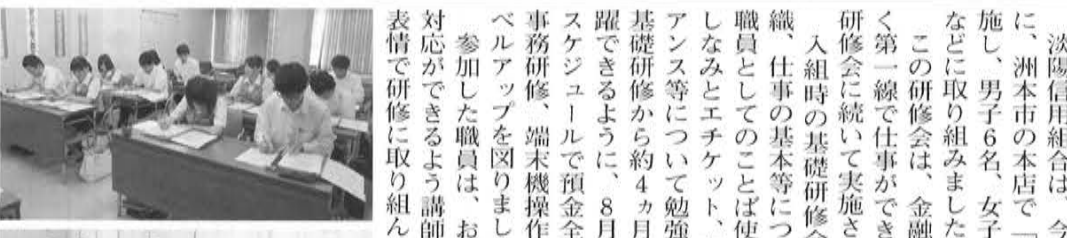 淡陽信用組合は、今
に、洲本市の本店で「
施し、男子6名、女子
などに取り組みました
この研修会は、金融
く第一線で仕事ができ
研修会に続いて実施さ
入組時の基礎研修会
織、仕事の基本等につ
職員としてのことば使
しなみとエチケット、
アンス等について勉強
基礎研修から約4ヵ月
躍できるように、8月
スケジュールで預金全
事務研修、端末機操作
ベルアップを図りまし
参加した職員は、お
対応ができるよう講師
表情で研修に取り組ん